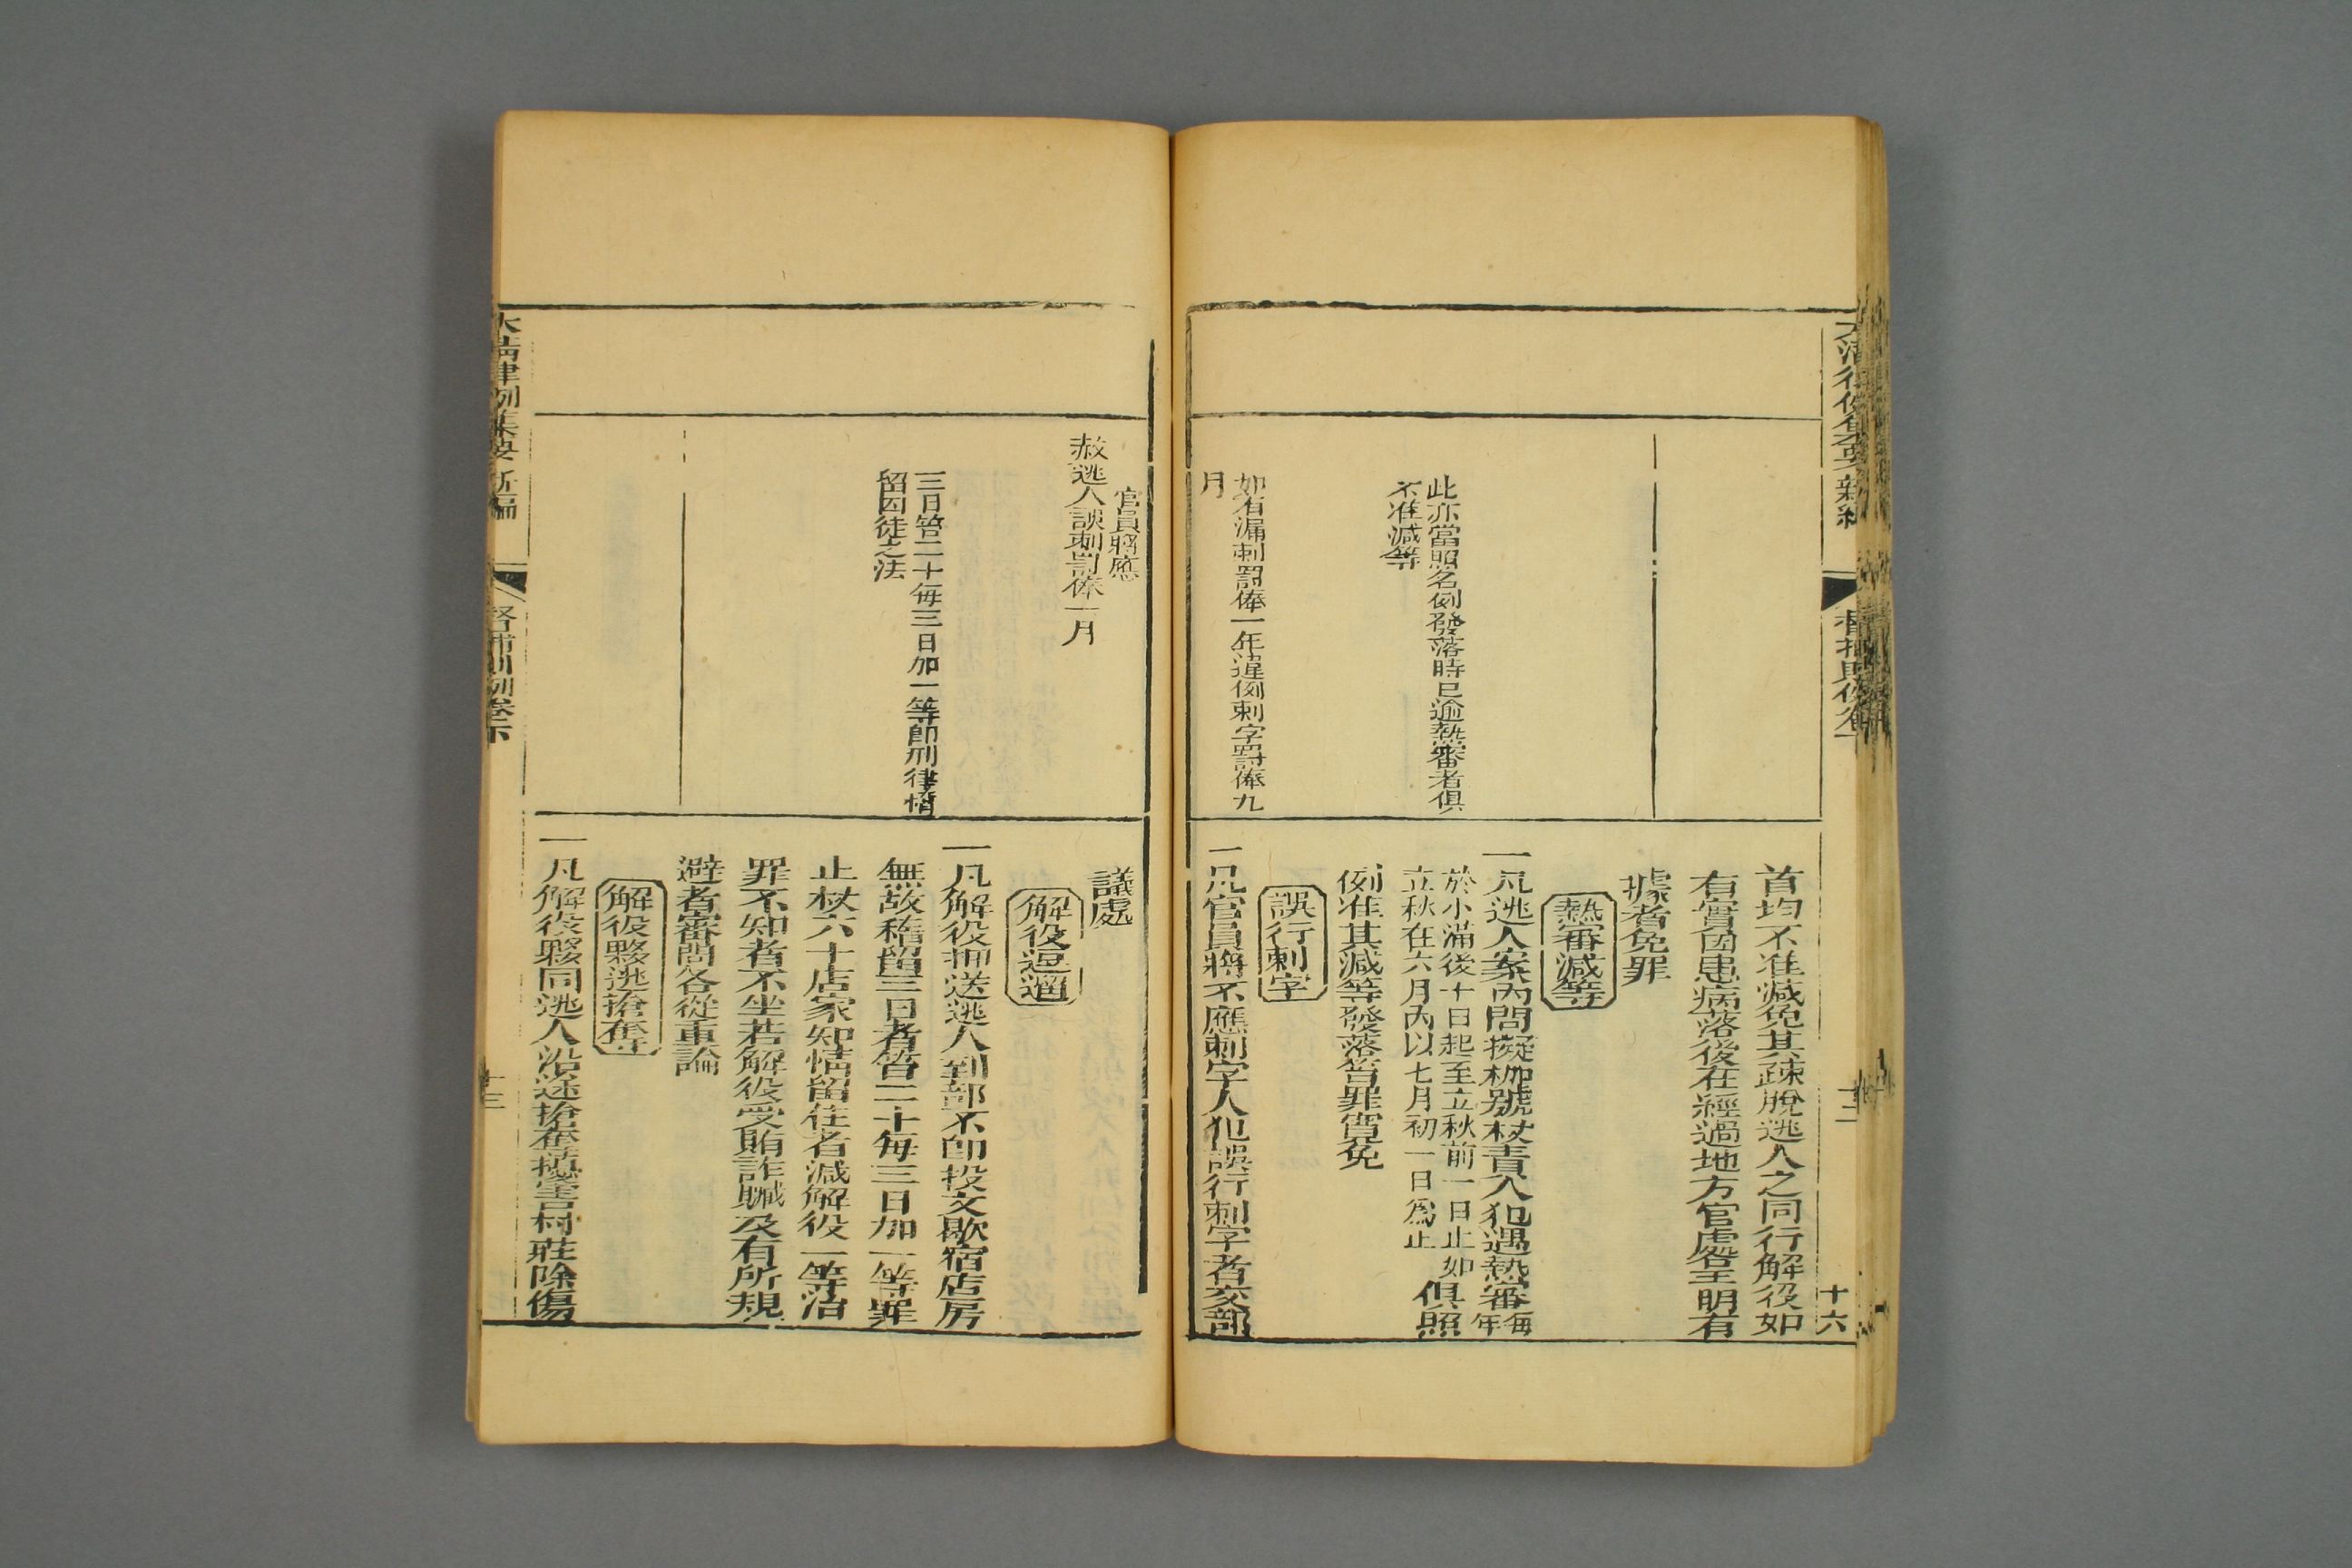 首均不准減免其疎脫逃人之同行解役如
有實因患病落後在經過地方官處呈明有
據者免罪
熱審減等
一凡逃人案內問擬枷號杖責人犯遇熱審每年
於小滿後十日起至立秋前一日止如
立秋在六月內以七月初一日爲止
俱照
例准其減等發落笞罪寬免
誤行刺字
一凡官員將不應刺字人犯誤行刺字者交部
此亦當照名例發落時已逾熱審者俱
不准減等
如有漏刺罰俸一年違例刺字罰俸九
月
十二
十六
議處
解役逗遛
一凡解役押送逃人到部不卽投文歇宿店房
無故稽留三日者笞二十每三日加一等罪
止杖六十店家知情留住者減解役一等治
罪不知者不坐若解役受賄詐贓及有所規
避者審問各從重論
解役夥逃搶奪
一凡解役夥同逃人沿途搶奪擾害村莊除傷
官員將應
赦逃人誤刺罰俸一月
三日笞二十每三日加一等卽刑律稽
留囚徒之法
大清律例集要新編
督捕則例卷下
十三